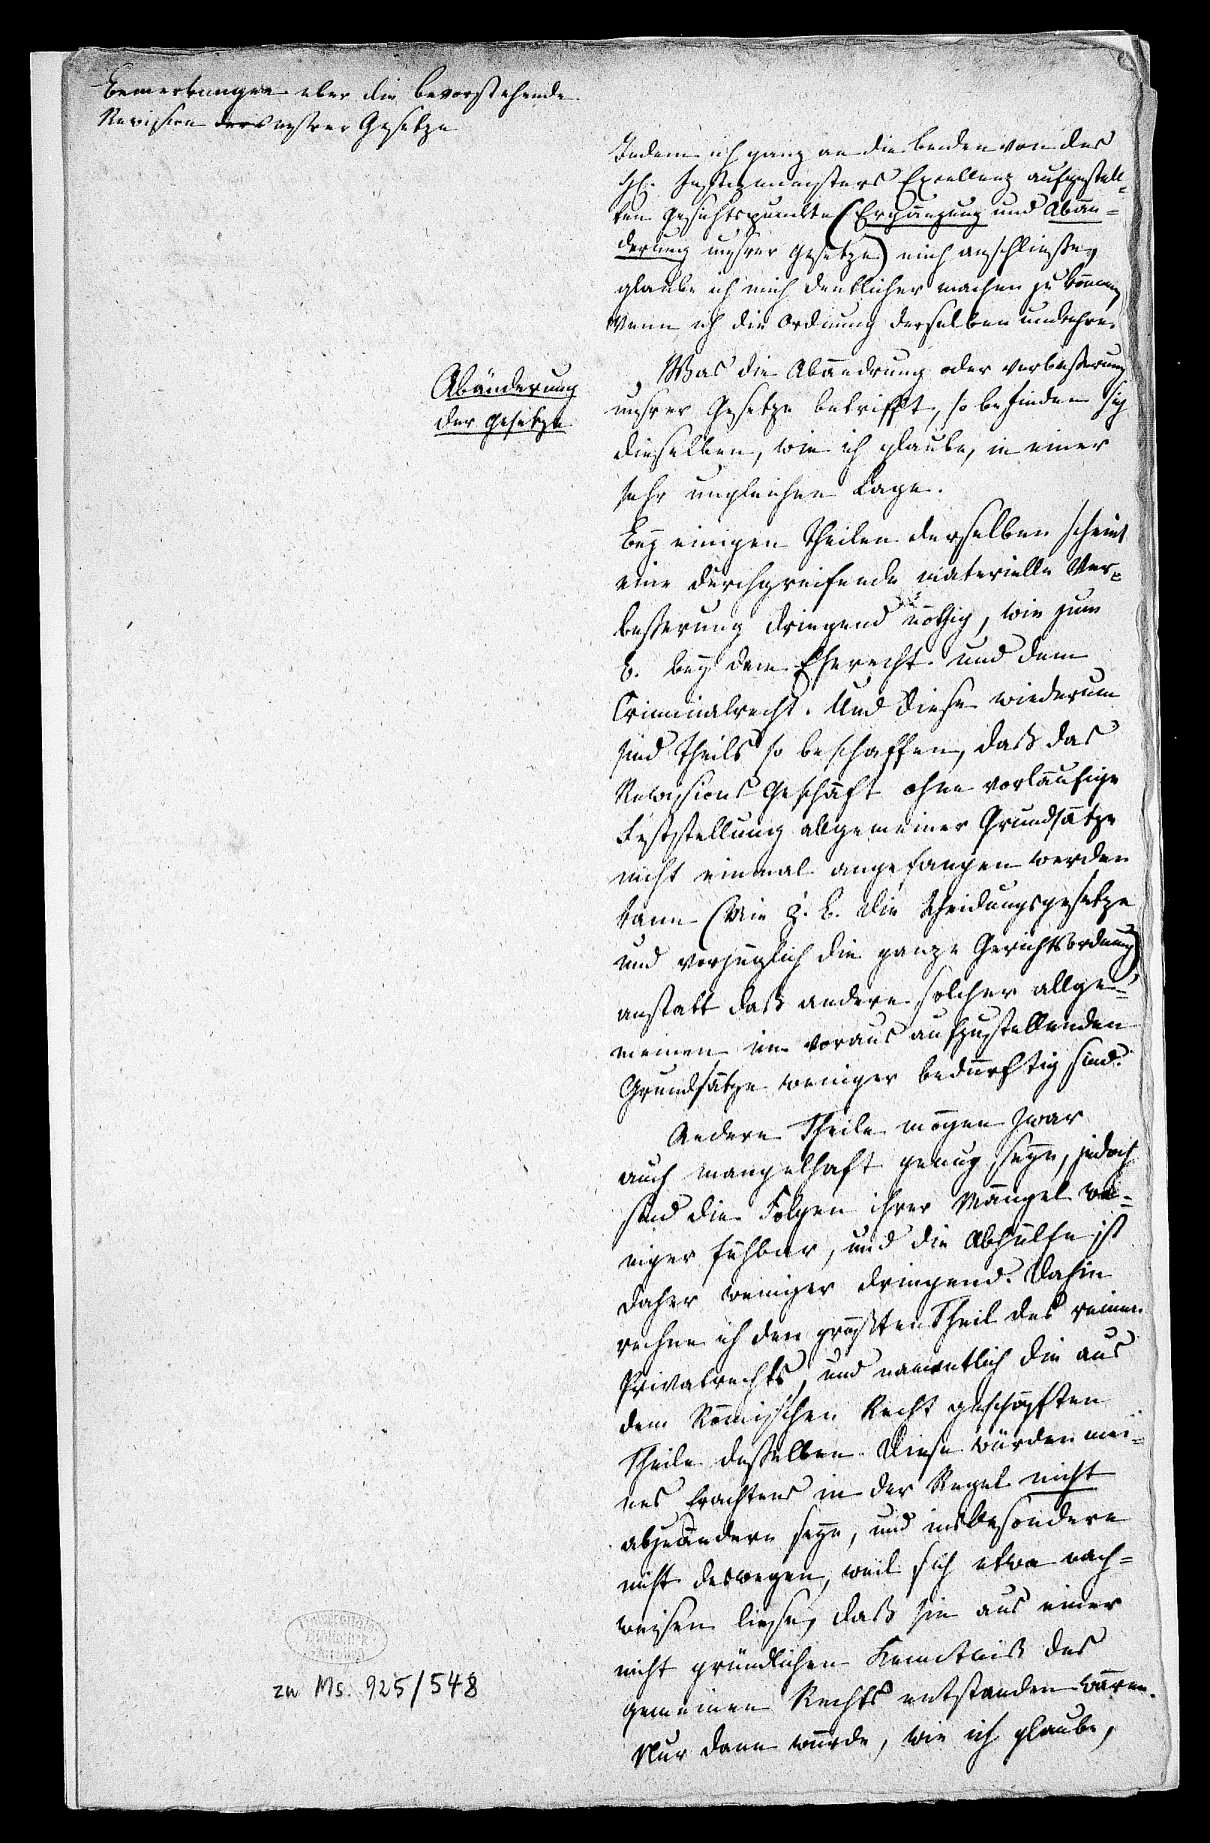 Bemerkungen über die bevorstehende
Revision der unsrer Gesetze
Indem ich ganz an die beiden von des
H. Justizministers Excellenz aufgestell-
ten Gesichtspunkte (Ergänzung und Abän-
derung unsrer Gesetze) mich anschließe,
glaube ich mich deutlicher machen zu können,
wenn ich die Ordnung derselben umkehre.
Abänderung
der Gesetze
Was die Abändrung oder Verbeßerung
unsrer Gesetze betrifft, so befinden sich
dieselben, wie ich glaube, in einer
sehr ungleichen Lage.
Bey einigen Theilen derselben scheint
eine durchgreifende materielle Ver-
beßerung dringend nöthig, wie zum
B. bey dem Eherecht und dem
Criminalrecht. Und diese wiederum
sind theils so beschaffen, daß das
Revisions Geschäft ohne vorläufige
Feststellung allgemeiner Grundsätze
nicht einmal angefangen werden
kann (wie z. B. die Scheidungsgesetze
und vorzüglich die ganze Gerichtsordnung)
anstatt daß andere solcher allge-
meinen im voraus aufzustellenden
Grundsätze weniger bedürftig sind.
Andere Theile mögen zwar
auch mangelhaft genug seyn, jedoch
sind die Folgen ihrer Mängel we-
niger fühlbar, und die Abhülfe ist
daher weniger dringend. Dahin
rechne ich den größten Theil des reinen
Privatrechts, und namentlich die aus
dem Römischen Recht geschöpften
Theile desselben. Diese würden mei-
nes Erachtens in der Regel nicht
abzuändern seyn, und insbesondere
nicht deswegen, weil sich etwa nach-
weisen liesse, daß sie aus einer
nicht gründlichen Kenntniß des
gemeinen Rechts entstanden wären.
Nur dann würde, wie ich glaube,
zu Ms. 925/548